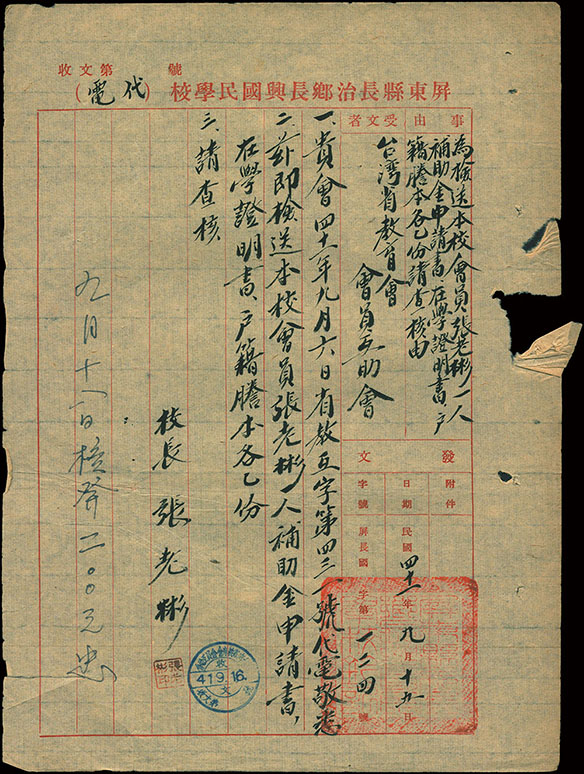 收文第　號
屏東縣長治鄉長興國民學校（代電）
事由
為檢送本校會員張老彬一人
補助金申請書、在學證明書、戶
籍謄本各乙份請查核由
受文者
台湾省教育會
會員互助會
發文
附件
日期 民國四十一年九月十五日
字號 屏長國字第一二四號
一、貴會四十一年九月六日省教互字第四三一號代電敬悉
二、茲即檢送本校會員張老彬一人補助金申請書、
在學證明書、戶籍謄本各乙份
三、請查核
校長 張老彬
收文
41.9.16.
九月十八日核發二〇〇元